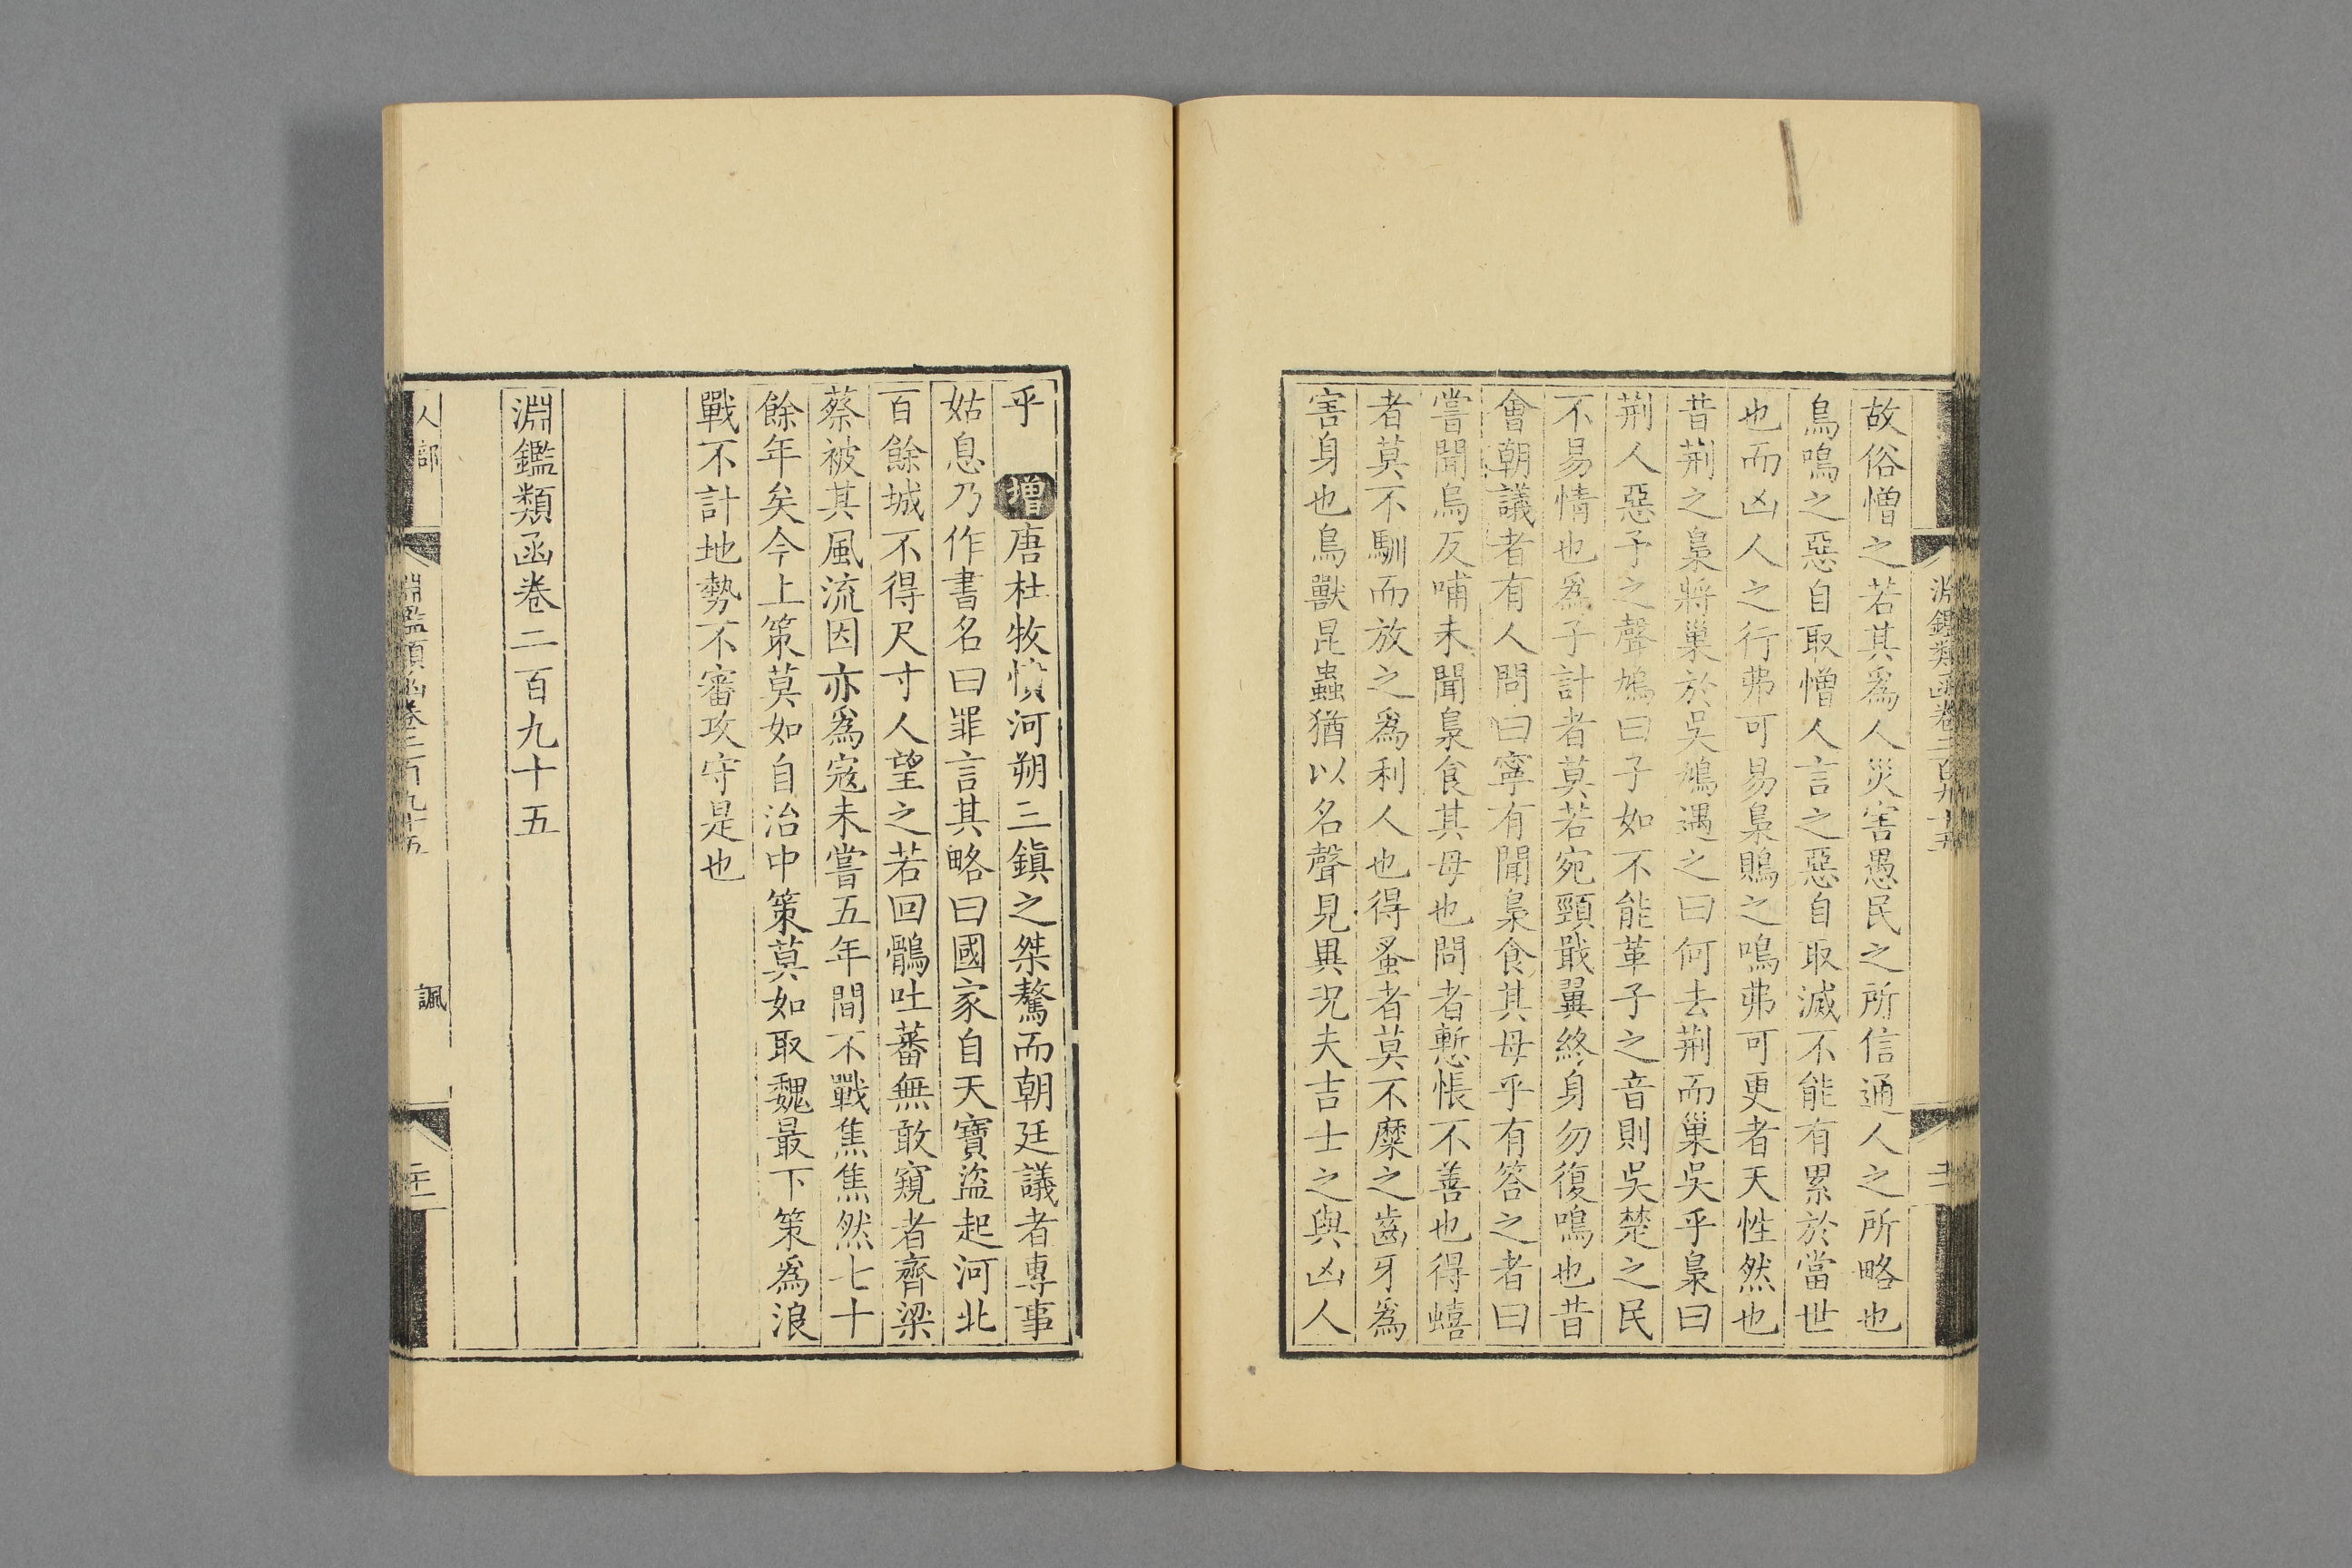 淵鑑類函卷二百九十五
故俗憎之若其爲人災害愚民之所信通人之所略也
鳥鳴之惡自取憎人言之惡自取滅不能有累於當世
也而凶人之行弗可易梟鵙之鳴弗可更者天性然也
昔荆之梟將巢於吳鳩遇之曰何去荆而巢吳乎梟曰
荆人惡予之聲鳩曰子如不能革子之音則吳楚之民
不易情也爲子計者莫若宛頸戢翼終身勿復鳴也昔
會朝議者有人問曰寧有聞梟食其母乎有答之者曰
嘗聞烏反哺未聞梟食其母也問者慙悵不善也得蟢
者莫不馴而放之爲利人也得蚤者莫不糜之齒牙爲
害身也鳥獸昆蟲猶以名聲見異況夫吉士之與凶人
乎 增唐杜牧憤河朔三鎭之桀驁而朝廷議者專事
姑息乃作書名曰罪言其略曰國家自天寶盜起河北
百餘城不得尺寸人望之若回鶻吐蕃無敢窺者齊梁
蔡被其風流因亦爲寇未嘗五年間不戰焦焦然七十
餘年矣今上策莫如自治中策莫如取魏最下策爲浪
戰不計地勢不審攻守是也
淵鑑類函卷二百九十五
人部
淵鑑類函卷二百九十五
諷